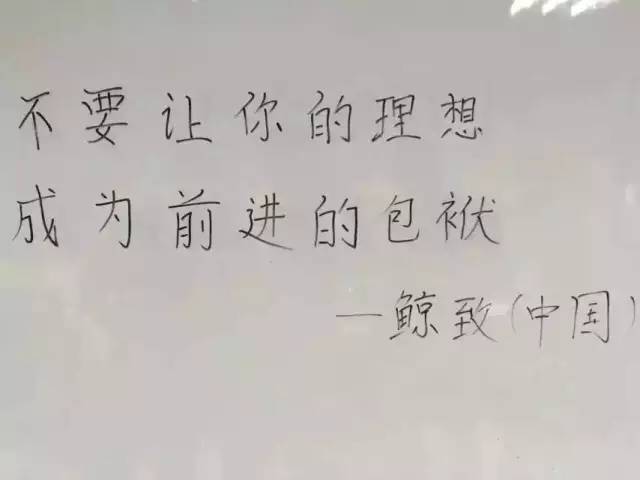 不要让你的理想
成为前进的包袱
—鲸致(中国)